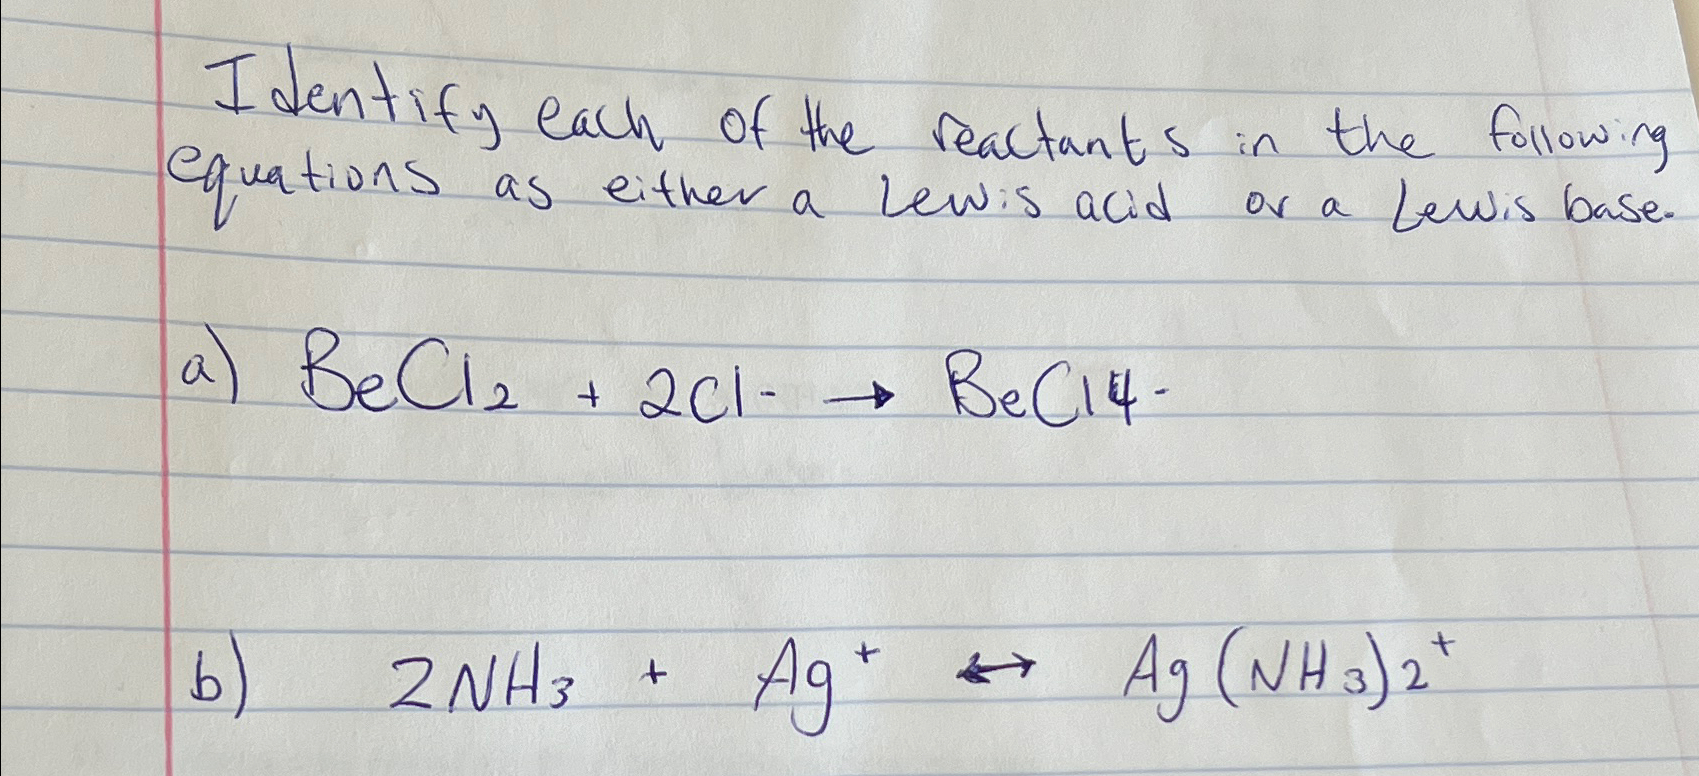 Identify each of the reactants in the following
equations as either a Lewis acid or a Lewis base.
a) BeCl2 + 2Cl- → BeCl4-
b) 2NH3 + Ag⁺ ↔ Ag(NH3)2⁺